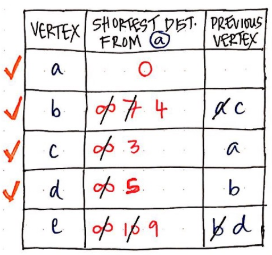 VERTEX SHORTEST DIST. FROM ⓐ PREVIOUS VERTEX
✓ a 0
✓ b ∞ 7 4 a c
✓ c ∞ 3 a
✓ d ∞ 5 b
e ∞ 10 9 b d